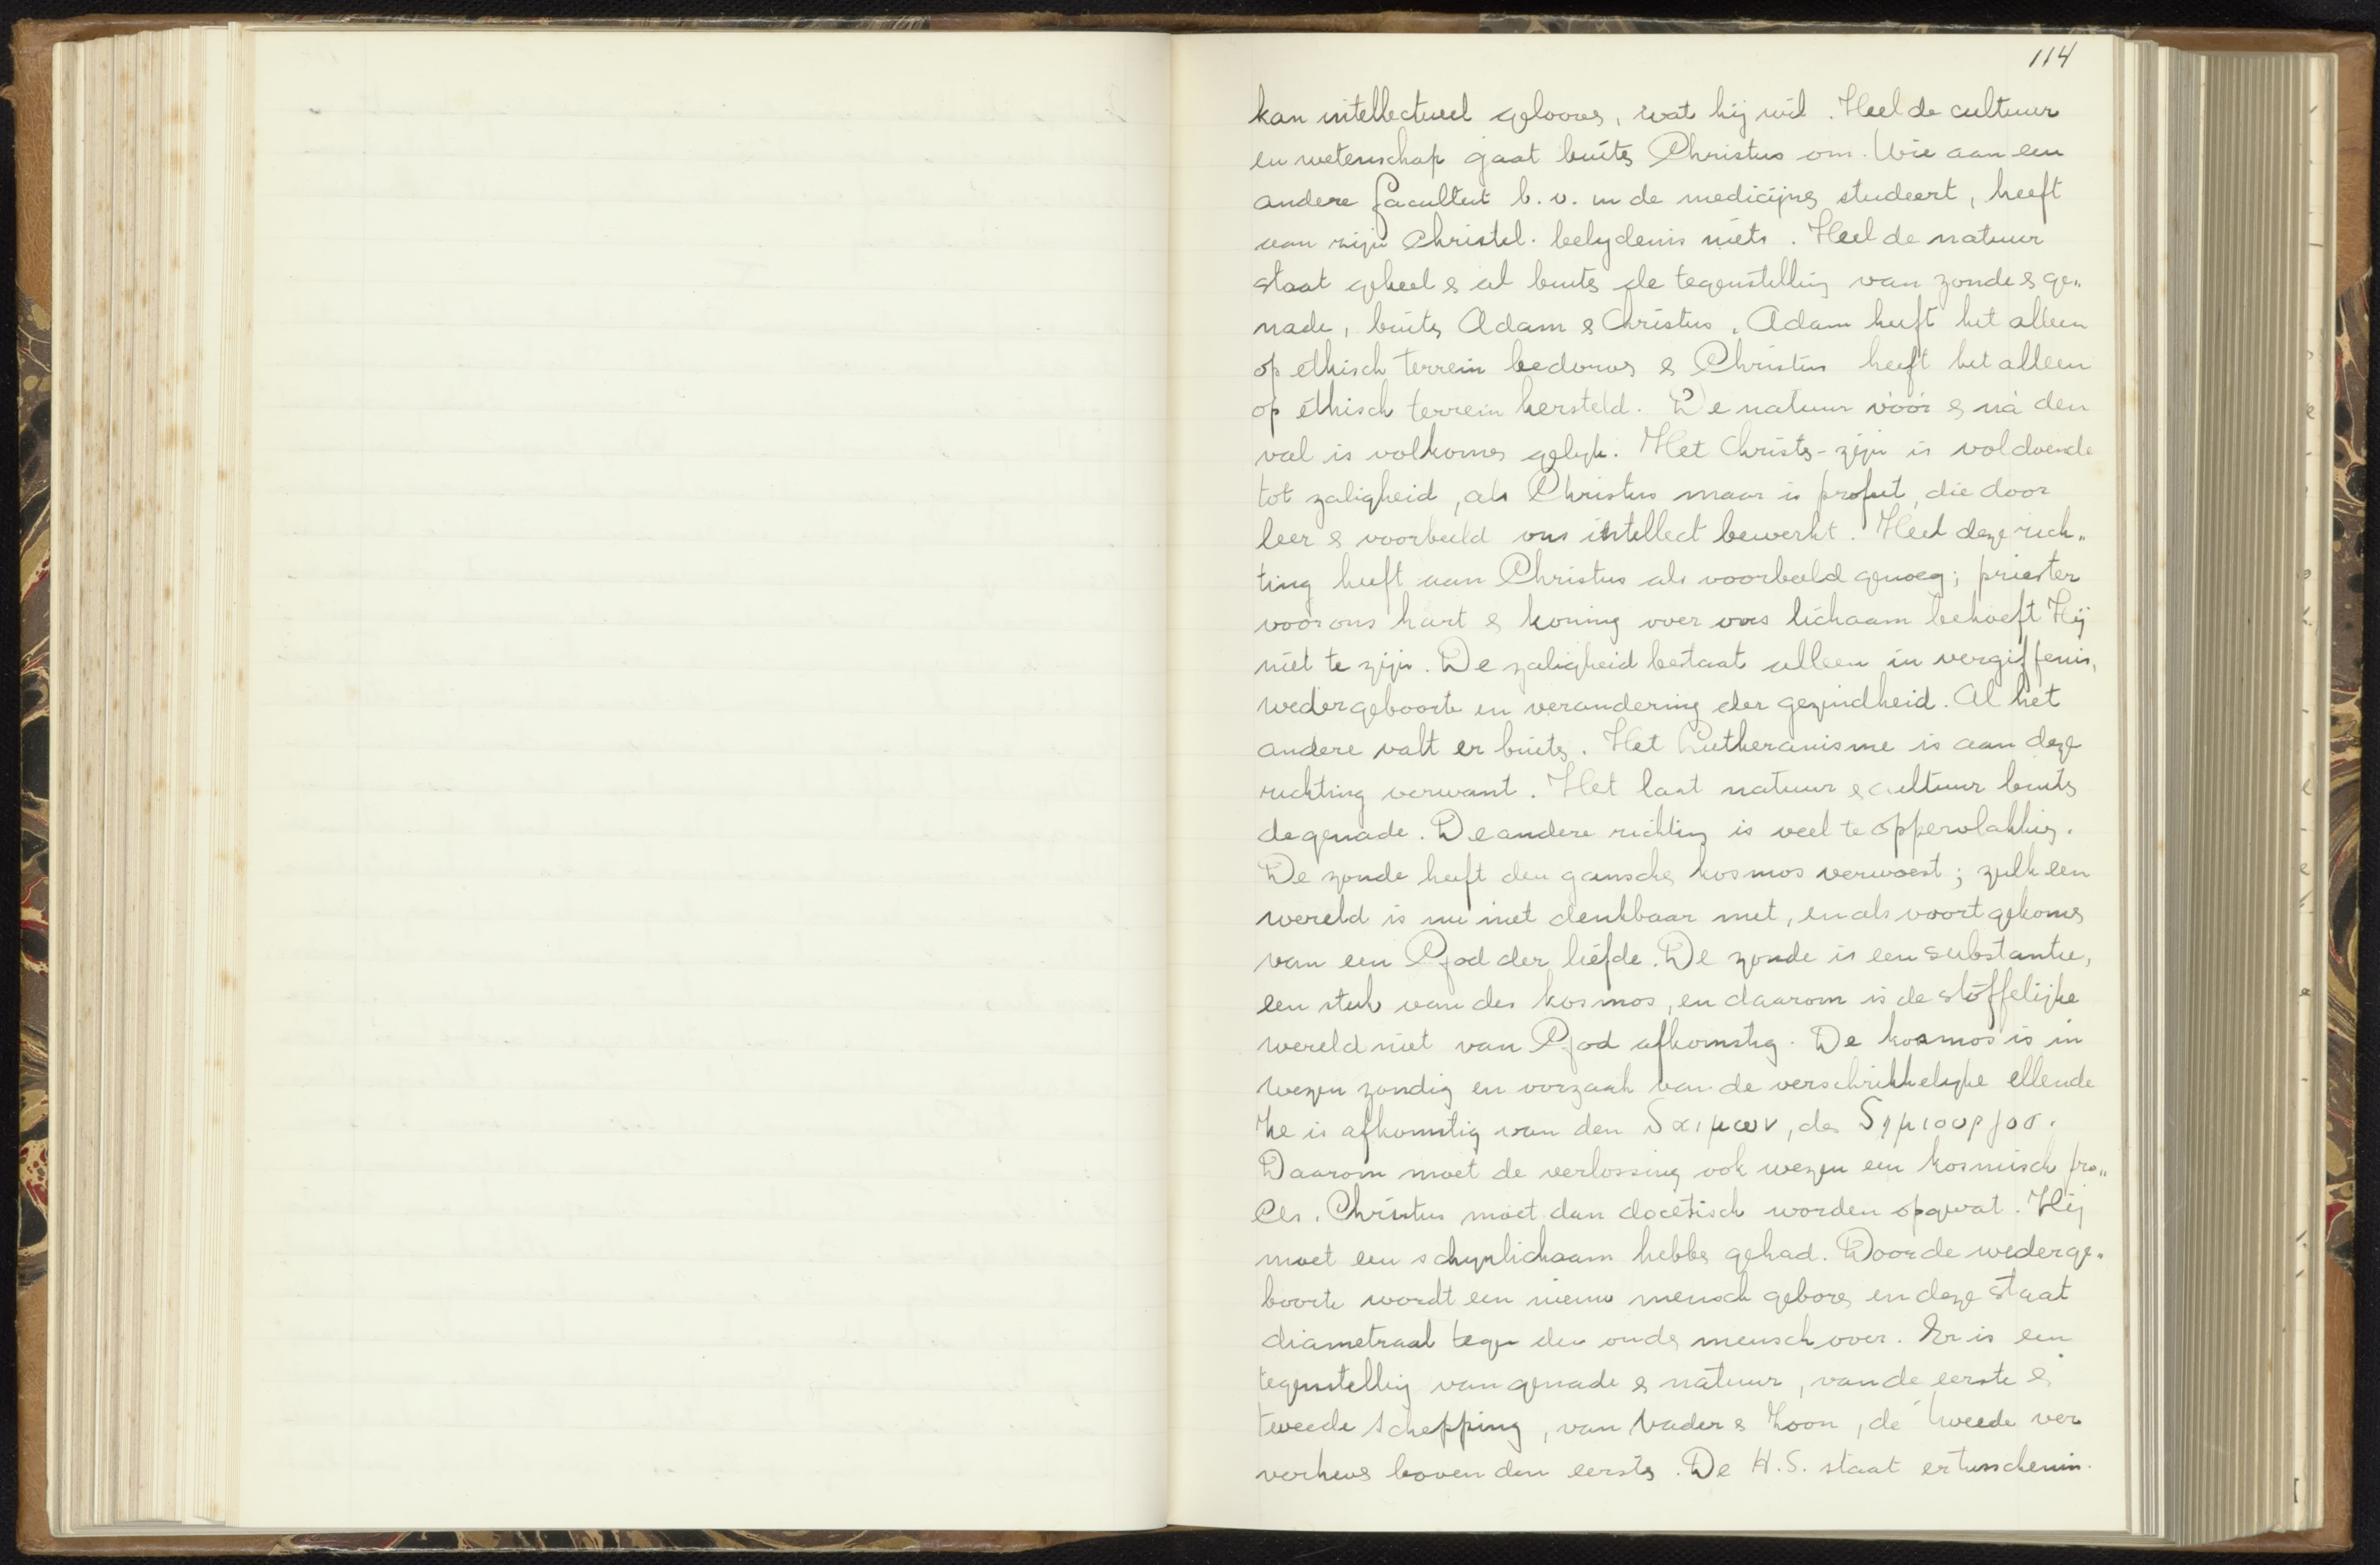 114
kan intellectueel gelooven, wat hij wil. Heel de cultuur
en wetenschap gaat buiten Christus om. Wie aan een
andere faculteit b.v. in de medicijnen studeert, heeft
aan zijn Christel. belydenis niets. Heel de natuur
staat geheel & al buiten de tegenstelling van zonde & ge„
nade, buiten Adam & Christus. Adam heeft het alleen
op ethisch terrein bedorven & Christus heeft het alleen
op éthisch terrein hersteld. De natuur vóór & ná den
val is volkomen gelyk. Het Christen-zijn is voldoende
tot zaligheid, als Christus maar is profeet, die door
leer & voorbeeld ons intellect bewerkt. Heel deze rich„
ting heeft aan Christus als voorbeeld genoeg; priester
voor ons hart & koning over ons lichaam behoeft Hij
niet te zijn. De zaligheid bestaat alleen in vergiffenis,
wedergeboorte en verandering der gezindheid. Al het
andere valt er buiten. Het Lutheranisme is aan deze
richting verwant. Het laat natuur & cultuur buiten
de genade. De andere richting is veel te oppervlakkig.
De zonde heeft den ganschen kosmos verwoest; zulk een
wereld is nu niet denkbaar met, en als voortgekomen
van een God der liefde. De zonde is een substantie,
een stuk van den kosmos, en daarom is de stoffelijke
wereld niet van God afkomstig. De kosmos is in
wezen zondig en oorzaak van de verschrikkelyke ellende
Ze is afkomstig van den δαιμων, den δημιουργοσ.
Daarom moet de verlossing ook wezen een kosmisch pro„
ces. Christus moet dan docetisch worden opgevat. Hij
moet een schynlichaam hebben gehad. Door de wederge„
boorte wordt een nieuw mensch geboren en deze staat
diametraal tegen den ouden mensch over. Er is een
tegenstelling van genade & natuur, van de eerste &
tweede schepping, van Vader & Zoon, de tweede ver
verheven boven den eersten. De H.S. staat er tusschen in.